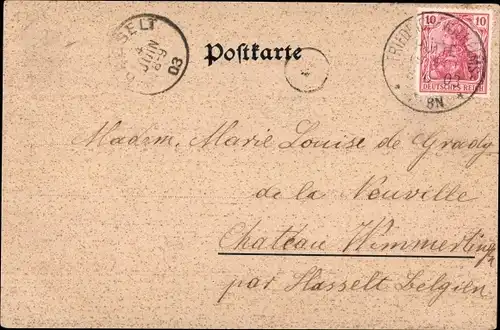 HASSELT
4
JUIN
8-9
03
Postkarte
10 10
DEUTSCHES REICH
03
8N
Madem. Marie Louise de Grady
de la Neuville
Chateau Wimmerting
par Hasselt Belgien